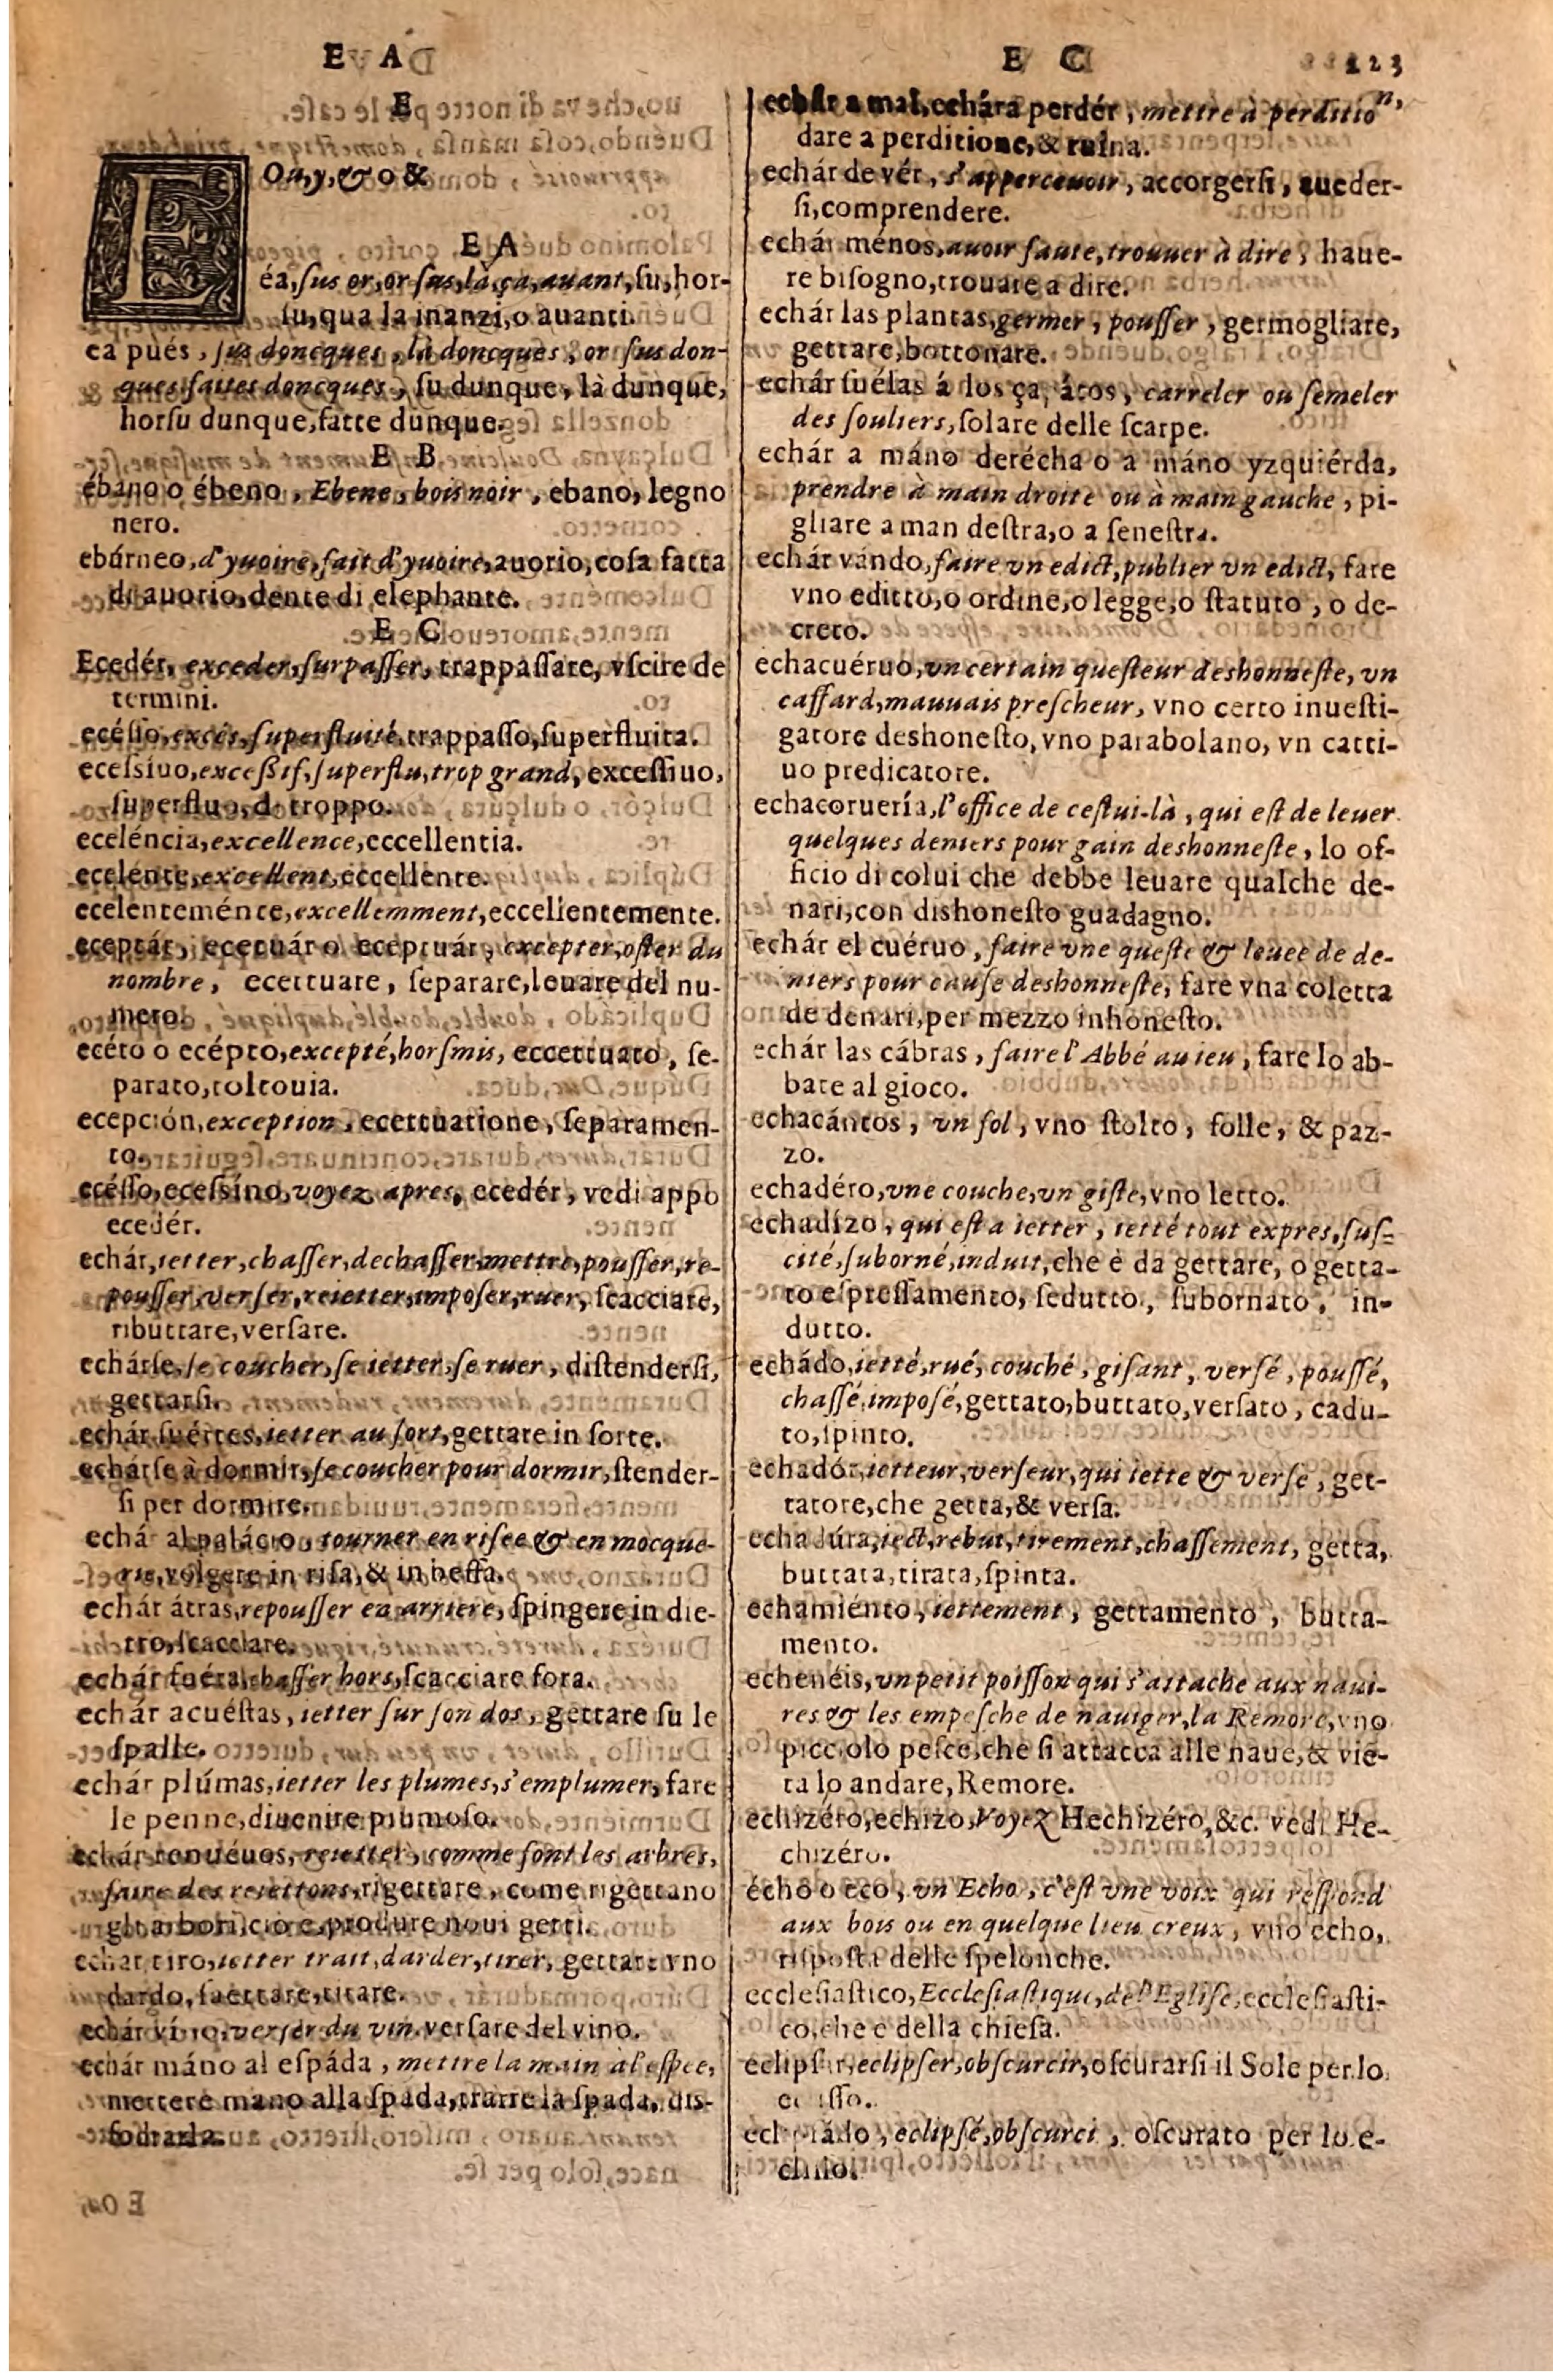 E A
E C
123
E
E Ou, y, & o &
E A
éa, ſus or, or ſus, là, ça, auant, ſu, hor-
ſu, qua la inanzi, o auanti.
ea pués, ſus doncques, là doncques, or ſus don-
ques faites doncques, ſu dunque, là dunque,
horſu dunque, fatte dunque.
E B
ébano o ébeno, Ebene, bois noir, ebano, legno
nero.
ebúrneo, d'yuoire, fait d'yuoire, auorio, coſa fatta
di auorio, dente di elephante.
E C
Ecedér, exceder, ſurpaſſer, trappaſſare, vſcire de
termini.
ecéſſo, excés, ſuperfluité, trappaſſo, ſuperfluita.
eceſsiuo, exceßif, ſuperflu, trop grand, exceſſiuo,
ſuperfluo, di troppo.
eceléncia, excellence, eccellentia.
ecelénte, excellent, eccellente.
ecelenteménte, excellemment, eccellentemente.
eceptár, ecetuár o eceptuár, excepter, oſter du
nombre, ecettuare, ſeparare, leuare del nu-
mero.
ecéto o ecépto, excepté, horſmis, eccettuato, ſe-
parato, toltouia.
ecepción, exception, ecettuatione, ſeparamen-
to.
ecéſſo, eceſsíno, voyez apres, ecedér, vedi appo
ecedér.
echár, ietter, chaſſer, dechaſſer, mettre, pouſſer, re-
pouſſer, verſer, reietter, impoſer, ruer, ſcacciare,
ributtare, verſare.
echárſe, ſe coucher, ſe ietter, ſe ruer, diſtenderſi,
gettarſi.
echár ſuértes, ietter au ſort, gettare in ſorte.
echárſe à dormir, ſe coucher pour dormir, ſtender-
ſi per dormire.
echár al palácio, tourner en riſee & en mocque-
rie, volgere in riſa, & in beffa.
echár átras, repouſſer en arriere, ſpingere in die-
tro, ſcacciare.
echár fuéra, chaſſer hors, ſcacciare fora.
echár acuéſtas, ietter ſur ſon dos, gettare ſu le
ſpalle.
echár plúmas, ietter les plumes, s'emplumer, fare
le penne, diuenire piumoſo.
echár renuéuos, reietter, comme font les arbres,
faire des reiettons, rigettare, come rigettano
gli arbori, cio e, produre noui getti.
echar tiro, ietter trait, darder, tirer, gettare vno
dardo, ſaettare, titare.
echár víno, verſer du vin. verſare del vino.
echár máno al eſpáda, mettre la main à l'eſpee,
mettere mano alla ſpada, trarre la ſpada, diſ-
fodrarla.
echár a mal, echára perdér, mettre à perdition,
dare a perditione, & ruina.
echár de vér, s'apperceuoir, accorgerſi, aueder-
ſi, comprendere.
echár ménos, auoir faute, trouuer à dire, haue-
re biſogno, trouare a dire.
echár las plantas, germer, pouſſer, germogliare,
gettare, bottonare.
echár ſuélas á los ça, átos, carreler ou ſemeler
des ſouliers, ſolare delle ſcarpe.
echár a máno derécha o a máno yzquiérda,
prendre à main droite ou à main gauche, pi-
gliare a man deſtra, o a ſeneſtra.
echár vándo, faire vn edict, publier vn edict, fare
vno editto, o ordine, o legge, o ſtatuto, o de-
creto.
echacuéruo, vn certain queſteur deshonneſte, vn
caffard, mauuais preſcheur, vno certo inueſti-
gatore deshoneſto, vno parabolano, vn catti-
uo predicatore.
echacoruería, l'office de ceſtui-là, qui eſt de leuer
quelques deniers pour gain deshonneſte, lo of-
ficio di colui che debbe leuare qualche de-
nari, con dishoneſto guadagno.
echár el cuéruo, faire vne queſte & leuee de de-
niers pour cauſe deshonneſte, fare vna coletta
de denari, per mezzo inhoneſto.
echár las cábras, faire l'Abbé au ieu, fare lo ab-
bate al gioco.
echacántos, vn fol, vno ſtolto, folle, & paz-
zo.
echadéro, vne couche, vn giſte, vno letto.
echadízo, qui eſt a ietter, ietté tout expres, ſuſ-
cité, ſuborné, induit, che è da gettare, o getta-
to eſpreſſamento, ſedutto, ſubornato, in-
dutto.
echádo, ietté, rué, couché, giſant, verſé, pouſſé,
chaſſé, impoſé, gettato, buttato, verſato, cadu-
to, ſpinto.
echadór, ietteur, verſeur, qui iette & verſe, get-
tatore, che getta, & verſa.
echadúra, iect, rebut, tirement, chaſſement, getta,
buttata, tirata, ſpinta.
echamiénto, iettement, gettamento, butta-
mento.
echenéis, vn petit poiſſon qui s'attache aux naui-
res & les empeſche de nauiger, la Remore, vno
picciolo peſce, che ſi attacca alle naue, & vie-
ta lo andare, Remore.
echizéro, echizo, Voyez Hechizéro, &c. vedi He-
chizéro.
écho o eco, vn Echo, c'eſt vne voix qui reſpond
aux bois ou en quelque lieu creux, vno echo,
riſpoſta delle ſpelonche.
eccleſiaſtico, Eccleſiaſtique, de l'Egliſe, eccleſiaſti-
co, che e della chieſa.
eclipſar, eclipſer, obſcurcir, oſcurarſi il Sole per lo
ecliſſo.
eclipſádo, eclipſé, obſcurci, oſcurato per lo e-
cliſſo.